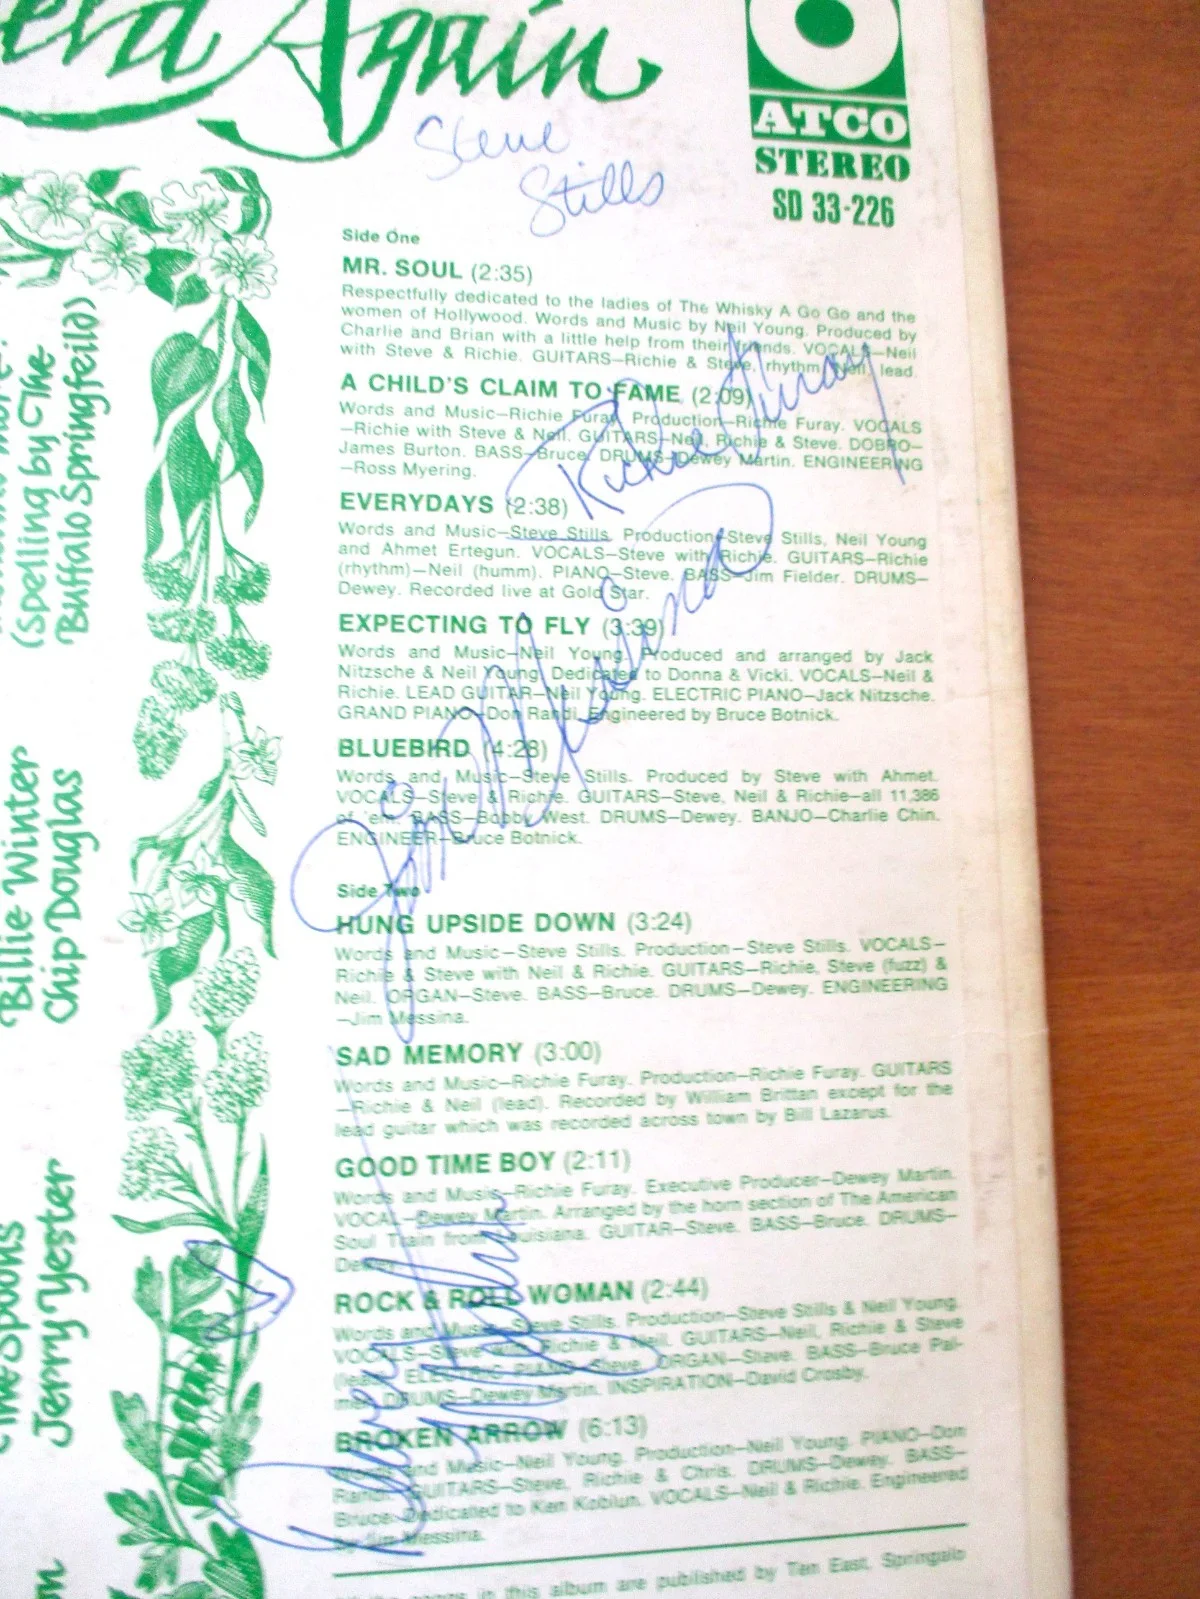 Again
ATCO
STEREO
SD 33-226
Steve
Stills
Side One
MR. SOUL (2:35)
Respectfully dedicated to the ladies of The Whisky A Go Go and the
women of Hollywood. Words and Music by Neil Young. Produced by
Charlie and Brian with a little help from their friends. VOCALS—Neil
with Steve & Richie. GUITARS—Richie & Steve, rhythm Neil, lead.
A CHILD'S CLAIM TO FAME (2:09)
Words and Music—Richie Furay. Production—Richie Furay. VOCALS
—Richie with Steve & Neil. GUITARS—Neil, Richie & Steve. DOBRO—
James Burton. BASS—Bruce. DRUMS—Dewey Martin. ENGINEERING
—Ross Myering.
Richie Furay
EVERYDAYS (2:38)
Words and Music—Steve Stills. Production—Steve Stills, Neil Young
and Ahmet Ertegun. VOCALS—Steve with Richie. GUITARS—Richie
(rhythm)—Neil (humm). PIANO—Steve. BASS—Jim Fielder. DRUMS—
Dewey. Recorded live at Gold Star.
EXPECTING TO FLY (3:39)
Words and Music—Neil Young. Produced and arranged by Jack
Nitzsche & Neil Young. Dedicated to Donna & Vicki. VOCALS—Neil &
Richie. LEAD GUITAR—Neil Young. ELECTRIC PIANO—Jack Nitzsche.
GRAND PIANO—Don Randi. Engineered by Bruce Botnick.
Jim Messina
BLUEBIRD (4:28)
Words and Music—Steve Stills. Produced by Steve with Ahmet.
VOCALS—Steve & Richie. GUITARS—Steve, Neil & Richie—all 11,386
of 'em. BASS—Bobby West. DRUMS—Dewey. BANJO—Charlie Chin.
ENGINEER—Bruce Botnick.
Side Two
HUNG UPSIDE DOWN (3:24)
Words and Music—Steve Stills. Production—Steve Stills. VOCALS—
Richie & Steve with Neil & Richie. GUITARS—Richie, Steve (fuzz) &
Neil. ORGAN—Steve. BASS—Bruce. DRUMS—Dewey. ENGINEERING
—Jim Messina.
SAD MEMORY (3:00)
Words and Music—Richie Furay. Production—Richie Furay. GUITARS
—Richie & Neil (lead). Recorded by William Brittan except for the
lead guitar which was recorded across town by Bill Lazarus.
GOOD TIME BOY (2:11)
Words and Music—Richie Furay. Executive Producer—Dewey Martin.
VOCAL—Dewey Martin. Arranged by the horn section of The American
Soul Train from Louisiana. GUITAR—Steve. BASS—Bruce. DRUMS—
Dewey.
ROCK & ROLL WOMAN (2:44)
Words and Music—Steve Stills. Production—Steve Stills & Neil Young.
VOCALS—Steve with Richie & Neil. GUITARS—Neil, Richie & Steve
(lead). ELECTRIC PIANO—Steve. ORGAN—Steve. BASS—Bruce Pal-
mer. DRUMS—Dewey Martin. INSPIRATION—David Crosby.
Dewey Martin
BROKEN ARROW (6:13)
Words and Music—Neil Young. Production—Neil Young. PIANO—Don
Randi. GUITARS—Steve, Richie & Chris. DRUMS—Dewey. BASS—
Bruce. Dedicated to Ken Koblun. VOCALS—Neil & Richie. Engineered
by Jim Messina.
in this album are published by Ten East, Springalo
(Spelling by The
Buffalo Springfeild)
Billie Winter
Chip Douglas
Spoons
Jerry Yester